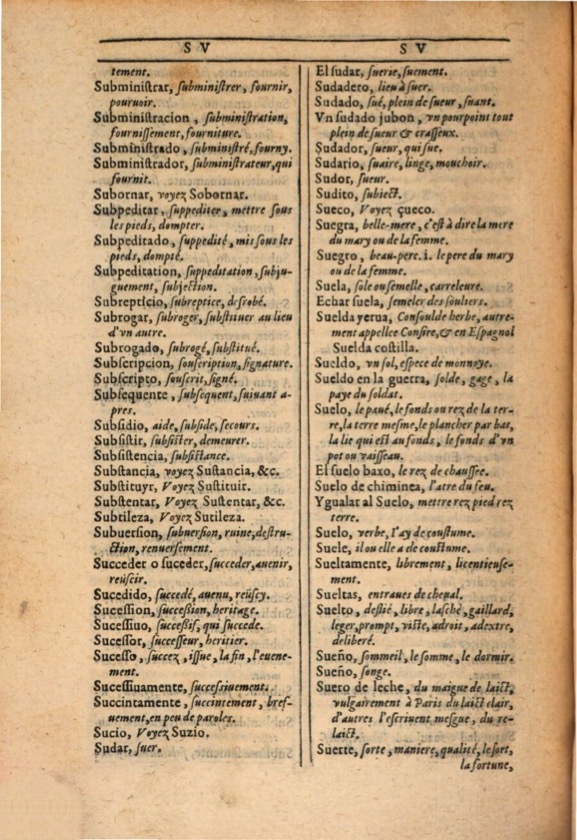 S V
tement.
Subminiſtrar, ſubminiſtrer, fournir,
pouruoir.
Subminiſtracion, ſubminiſtration,
fourniſſement, fourniture.
Subminiſtrado, ſubminiſtré, fourny.
Subminiſtrador, ſubminiſtrateur, qui
fournit.
Subornar, voyez Sobornar.
Subpeditar, ſuppediter, mettre ſous
les pieds, dompter.
Subpeditado, ſuppedité, mis ſous les
pieds, dompté.
Subpeditation, ſuppeditation, ſubju-
guement, ſubjection.
Subrepticio, ſubreptice, deſrobé.
Subrogar, ſubroger, ſubſtituer au lieu
d'vn autre.
Subrogado, ſubrogé, ſubſtitué.
Subſcripcion, ſouſcription, ſignature.
Subſcripto, ſouſcrit, ſigné.
Subſequente, ſubſequent, ſuiuant a-
pres.
Subſidio, aide, ſubſide, ſecours.
Subſiſtir, ſubſiſter, demeurer.
Subſiſtencia, ſubſiſtance.
Subſtancia, voyez Suſtancia, &c.
Subſtituyr, Voyez Suſtituir.
Subſtentar, Voyez Suſtentar, &c.
Subtileza, Voyez Sutileza.
Subuerſion, ſubuerſion, ruine, deſtru-
ction, renuerſement.
Succeder o ſuceder, ſucceder, auenir,
reüſcir.
Sucedido, ſuccedé, auenu, reüſcy.
Suceſſion, ſucceſſion, heritage.
Suceſſiuo, ſucceſſif, qui ſuccede.
Suceſſor, ſucceſſeur, heritier.
Suceſſo, ſuccez, iſſue, la fin, l'euene-
ment.
Suceſſiuamente, ſucceſſiuement.
Succintamente, ſuccintement, breſ-
uement, en peu de paroles.
Sucio, Voyez Suzio.
Sudar, ſuer.
S V
El ſudar, ſuerie, ſuement.
Sudadero, lieu à ſuer.
Sudado, ſué, plein de ſueur, ſuant.
Vn ſudado jubon, vn pourpoint tout
plein de ſueur & craſſeux.
Sudador, ſueur, qui ſue.
Sudario, ſuaire, linge, mouchoir.
Sudor, ſueur.
Sudito, ſubiect.
Sueco, Voyez çueco.
Suegra, belle-mere, c'eſt à dire la mere
du mary ou de la femme.
Suegro, beau-pere. i. le pere du mary
ou de la femme.
Suela, ſole ou ſemelle, carreleure.
Echar ſuela, ſemeler des ſouliers.
Suelda yerua, Conſoulde herbe, autre-
ment appellee Conſire, & en Eſpagnol
Suelda coſtilla.
Sueldo, vn ſol, eſpece de monnoye.
Sueldo en la guerra, ſolde, gage, la
paye du ſoldat.
Suelo, le paué, le fonds ou rez de la ter-
re, la terre meſme, le plancher par bas,
la lie qui eſt au fonds, le fonds d'vn
pot ou vaiſſeau.
El ſuelo baxo, le rez de chauſſee.
Suelo de chiminea, l'atre du feu.
Ygualar al Suelo, mettre rez pied rez
terre.
Suelo, verbe, i'ay de couſtume.
Suele, il ou elle a de couſtume.
Sueltamente, librement, licentieuſe-
ment.
Sueltas, entraues de cheual.
Suelto, deſlié, libre, laſché, gaillard,
leger, prompt, viſte, adroit, adextre,
deliberé.
Sueño, ſommeil, le ſomme, le dormir.
Sueño, ſonge.
Suero de leche, du maigue de laict,
vulgairement à Paris du laict clair,
d'autres l'eſcriuent meſgue, du re-
laict.
Suerte, ſorte, maniere, qualité, le ſort,
la fortune,